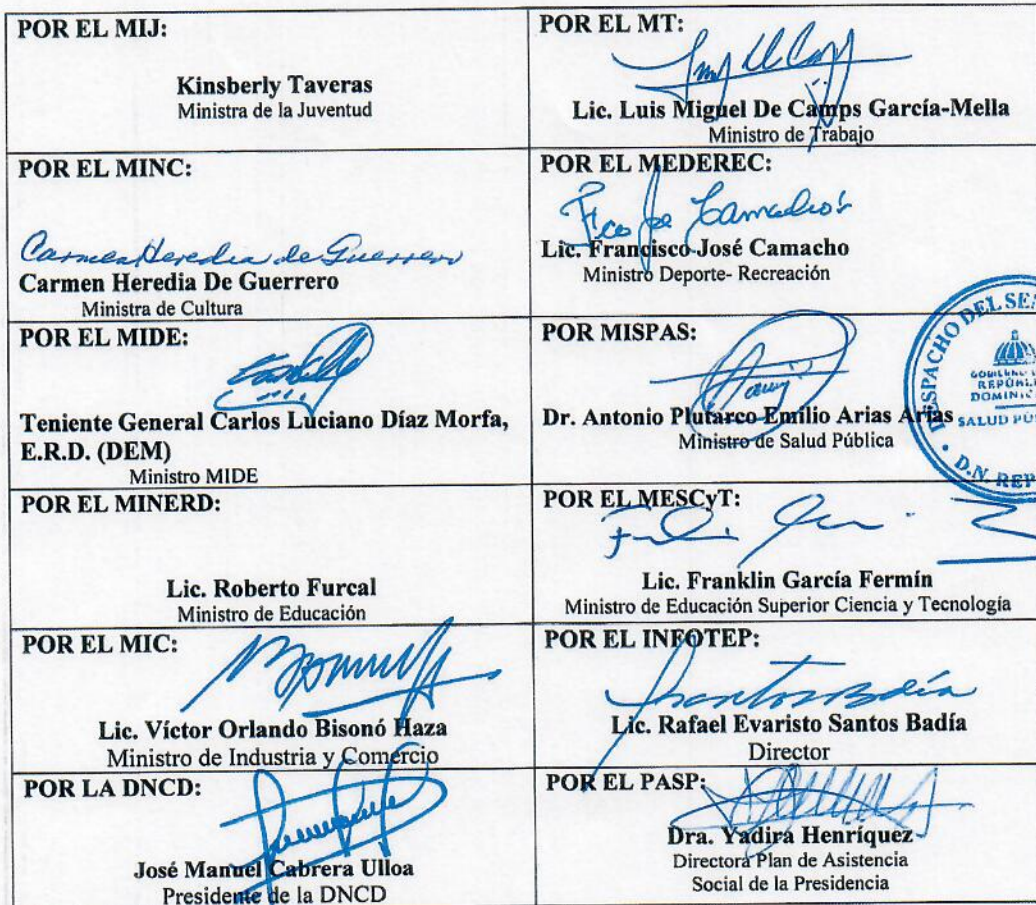 POR EL MIJ:
Kinsberly Taveras
Ministra de la Juventud
POR EL MT:
Lic. Luis Miguel De Camps García-Mella
Ministro de Trabajo
POR EL MINC:
Carmen Heredia de Guerrero
Carmen Heredia De Guerrero
Ministra de Cultura
POR EL MEDEREC:
Lic. Francisco José Camacho
Ministro Deporte- Recreación
POR EL MIDE:
Teniente General Carlos Luciano Díaz Morfa,
E.R.D. (DEM)
Ministro MIDE
POR MISPAS:
Dr. Antonio Plutarco Emilio Arias Arias
Ministro de Salud Pública
DESPACHO DEL
SALUD
D.N.
POR EL MINERD:
Lic. Roberto Furcal
Ministro de Educación
POR EL MESCyT:
Lic. Franklin García Fermín
Ministro de Educación Superior Ciencia y Tecnología
POR EL MIC:
Lic. Víctor Orlando Bisonó Haza
Ministro de Industria y Comercio
POR EL INFOTEP:
Santos Badía
Lic. Rafael Evaristo Santos Badía
Director
POR LA DNCD:
José Manuel Cabrera Ulloa
Presidente de la DNCD
POR EL PASP:
Dra. Yadira Henríquez
Directora Plan de Asistencia
Social de la Presidencia